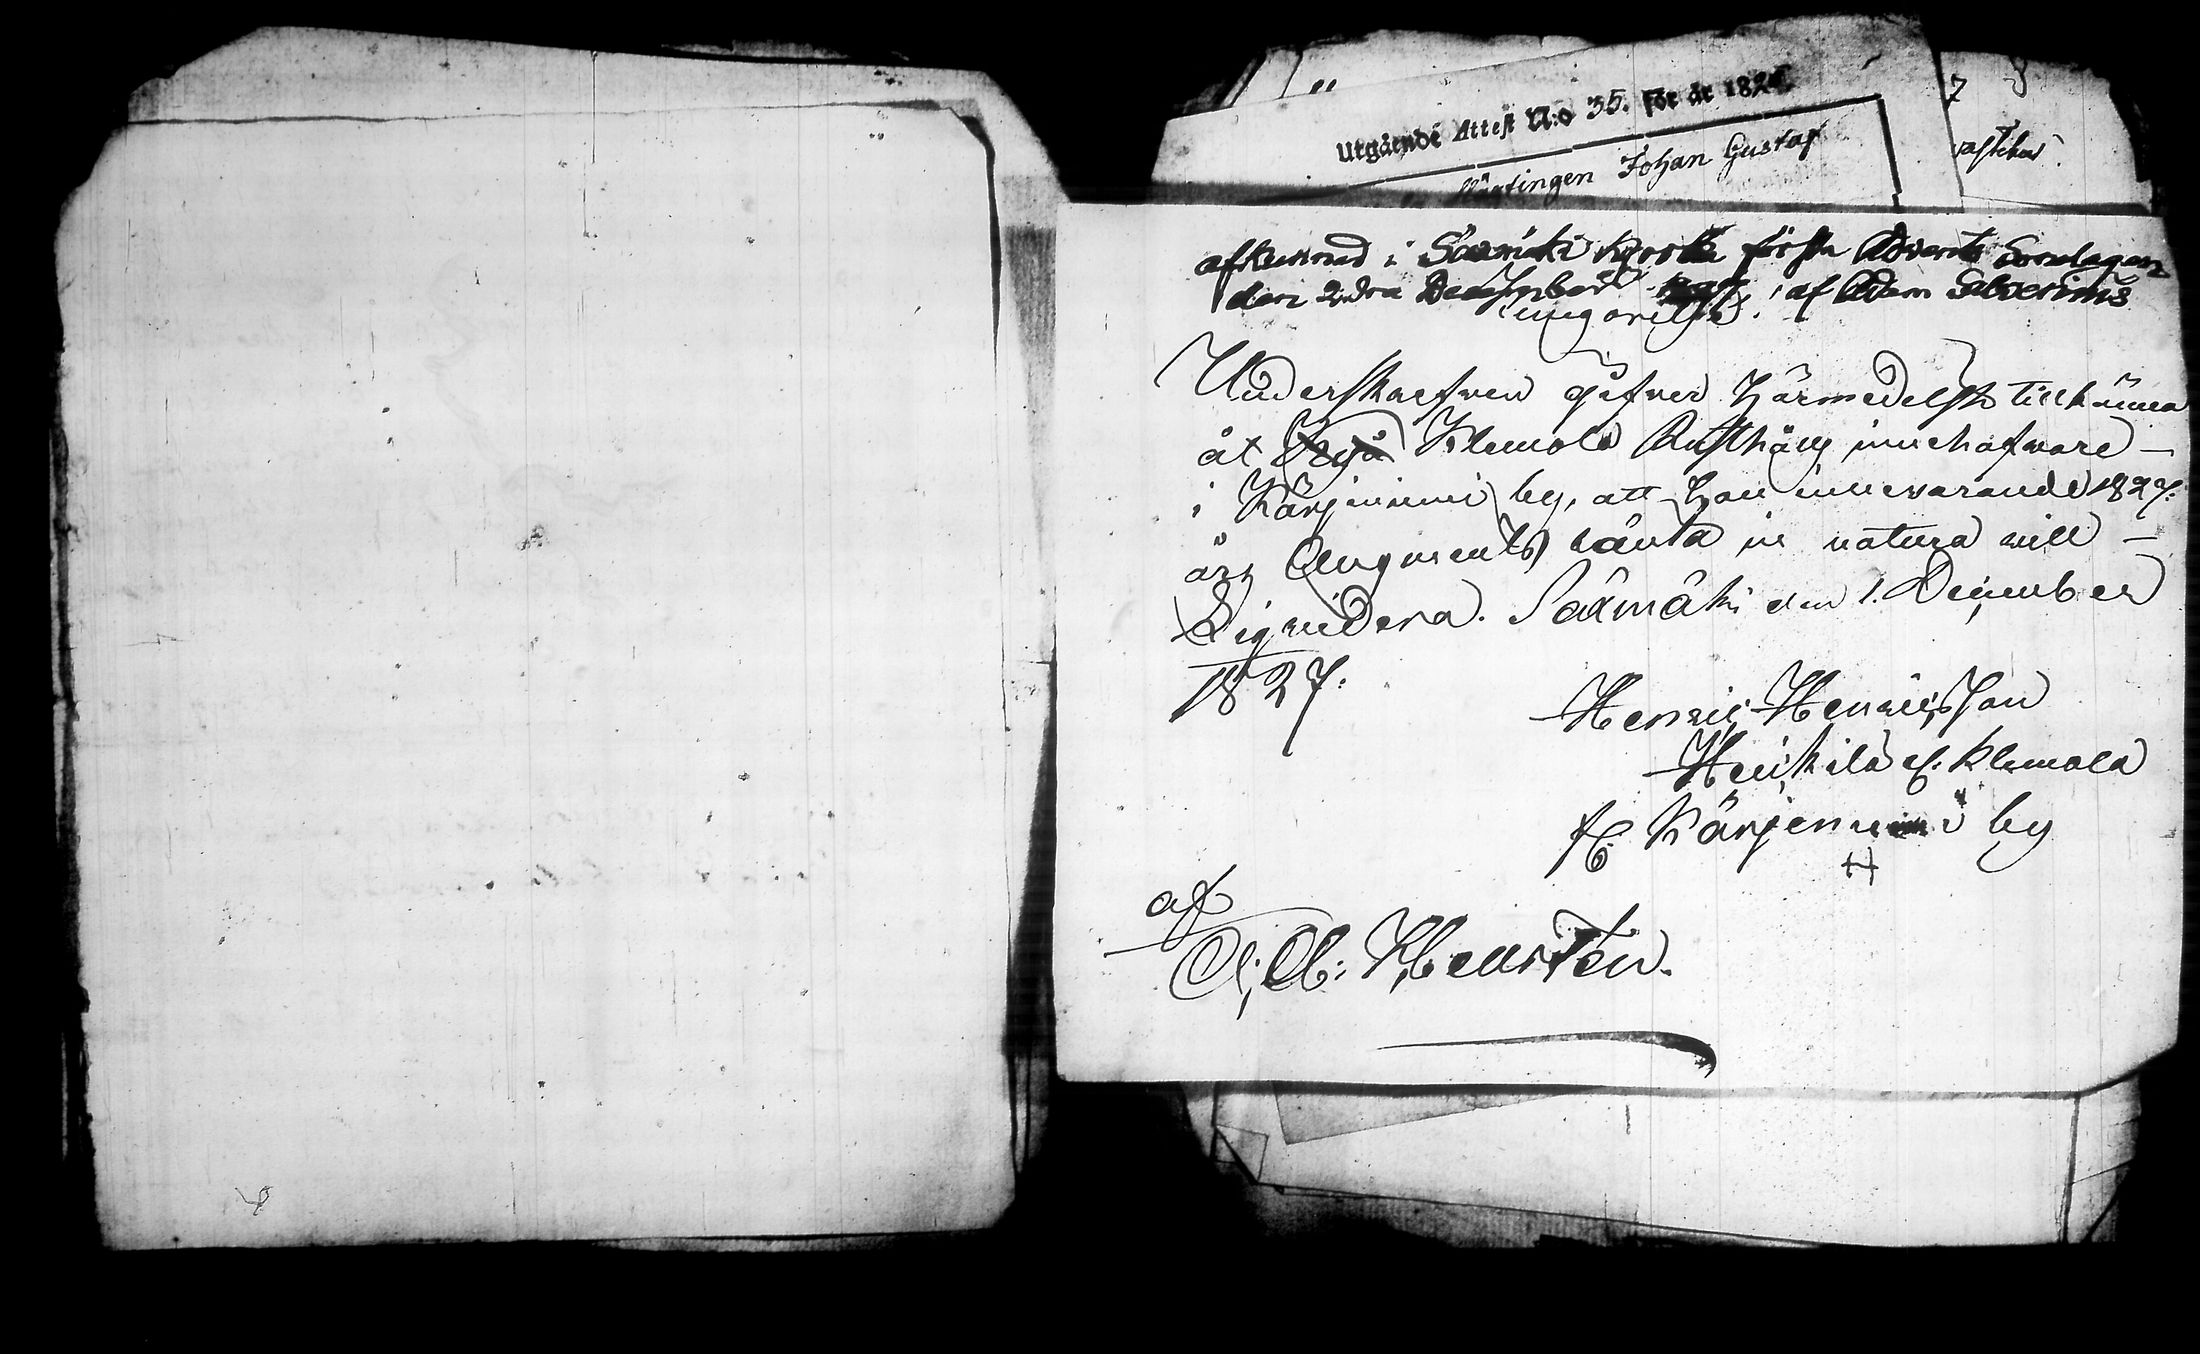 Utgående Attest N:o 35. för år 182
Johan Gustaf
afkunnad i Säxmäki kyrka första Advents Sondagen
den 2:dra December af Adam Selverius
Underskrefven gifver härmedelst tillkänna
åt Klemola Rusthålls innehafvare —
i Kärjenniemi by, att han innevarande 1827:
års Augments ränta in natura vill —
Liqvidera. Säxmäki den 1. December
1827:
Henric Henricsson
Heickilä et. Klemola
fr. Kärjenniemi by
af
A: Hellsten.